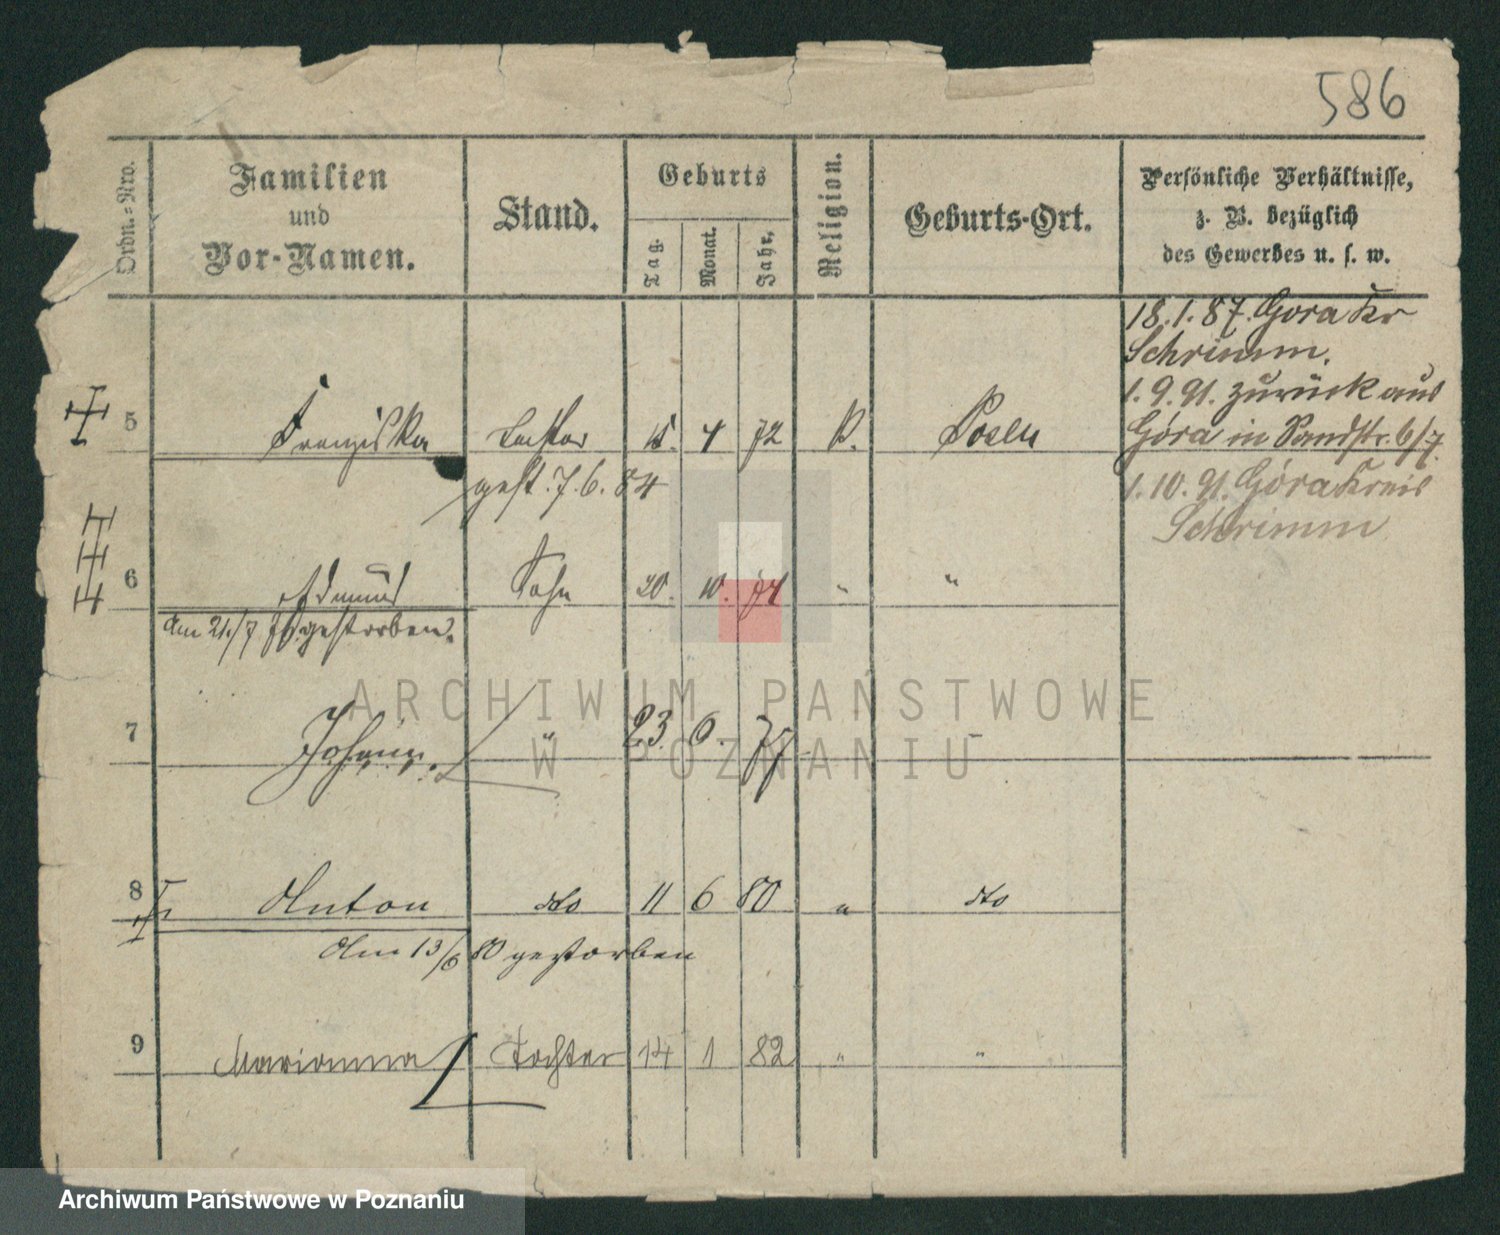 586
Ordn.=Nro.
Familien
und
Vor-Namen.
Stand.
Geburts
Tag.
Monat.
Jahr.
Religion.
Geburts-Ort.
Persönliche Verhältnisse,
z. B. bezüglich
des Gewerbes u. s. w.
18.1.87. Gora Kr
Schrimm.
1.9.91. zurück aus
Góra in Sandstr. 6/7.
1.10.91. Góra Kreis
Schrimm
5 Franziska Tochter 15. 4 72 k. Posen
gest. 7.6.84
6 Edmund Sohn 20. 10. 74 " "
Am 21./7 76 gestorben.
7 Johann. " 23. 6. 77 -
8 Anton dto 11 6 80 " dto
Am 13/6 80 gestorben
9 Marianna Tochter 14 1 82 " "
ARCHIWUM PAŃSTWOWE
W POZNANIU
Archiwum Państwowe w Poznaniu